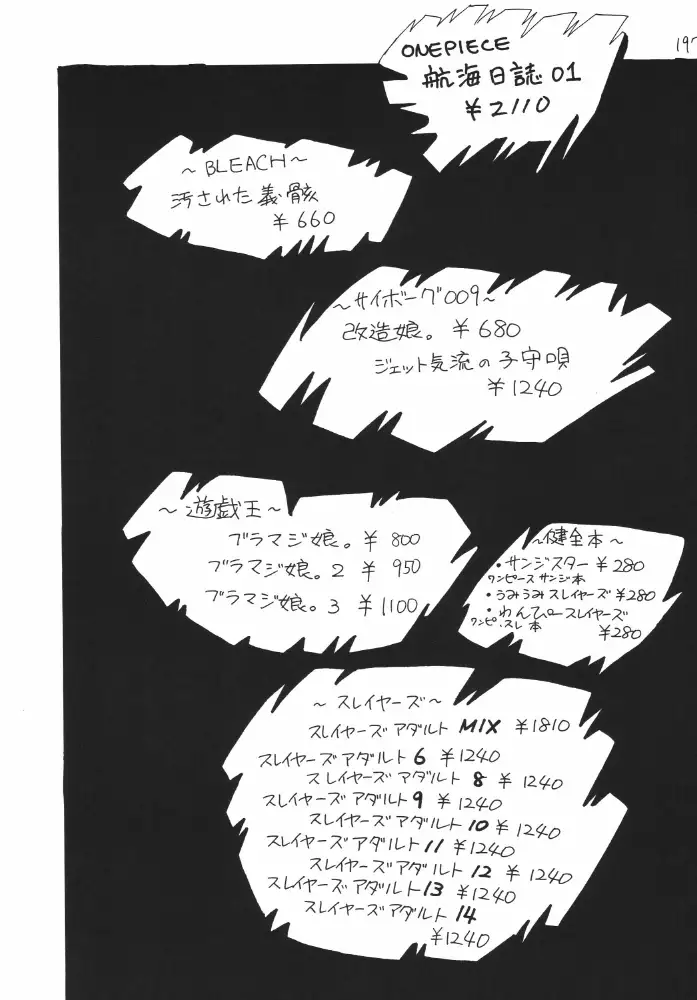 197
ONEPIECE
航海日誌01
¥2110
～BLEACH～
汚された義骸
¥660
～サイボーグ009～
改造娘。 ¥680
ジェット気流の子守唄
¥1240
～遊戯王～
ブラマジ娘。 ¥800
ブラマジ娘。2 ¥950
ブラマジ娘。3 ¥1100
～健全本～
・サンジスター ¥280
ワンピース サンジ本
・うみうみスレイヤーズ ¥280
・わんぴースレイヤーズ
ワンピ.スレ本 ¥280
～スレイヤーズ～
スレイヤーズアダルト MIX ¥1810
スレイヤーズアダルト 6 ¥1240
スレイヤーズアダルト 8 ¥1240
スレイヤーズアダルト 9 ¥1240
スレイヤーズアダルト 10 ¥1240
スレイヤーズアダルト 11 ¥1240
スレイヤーズアダルト 12 ¥1240
スレイヤーズアダルト 13 ¥1240
スレイヤーズアダルト 14
¥1240